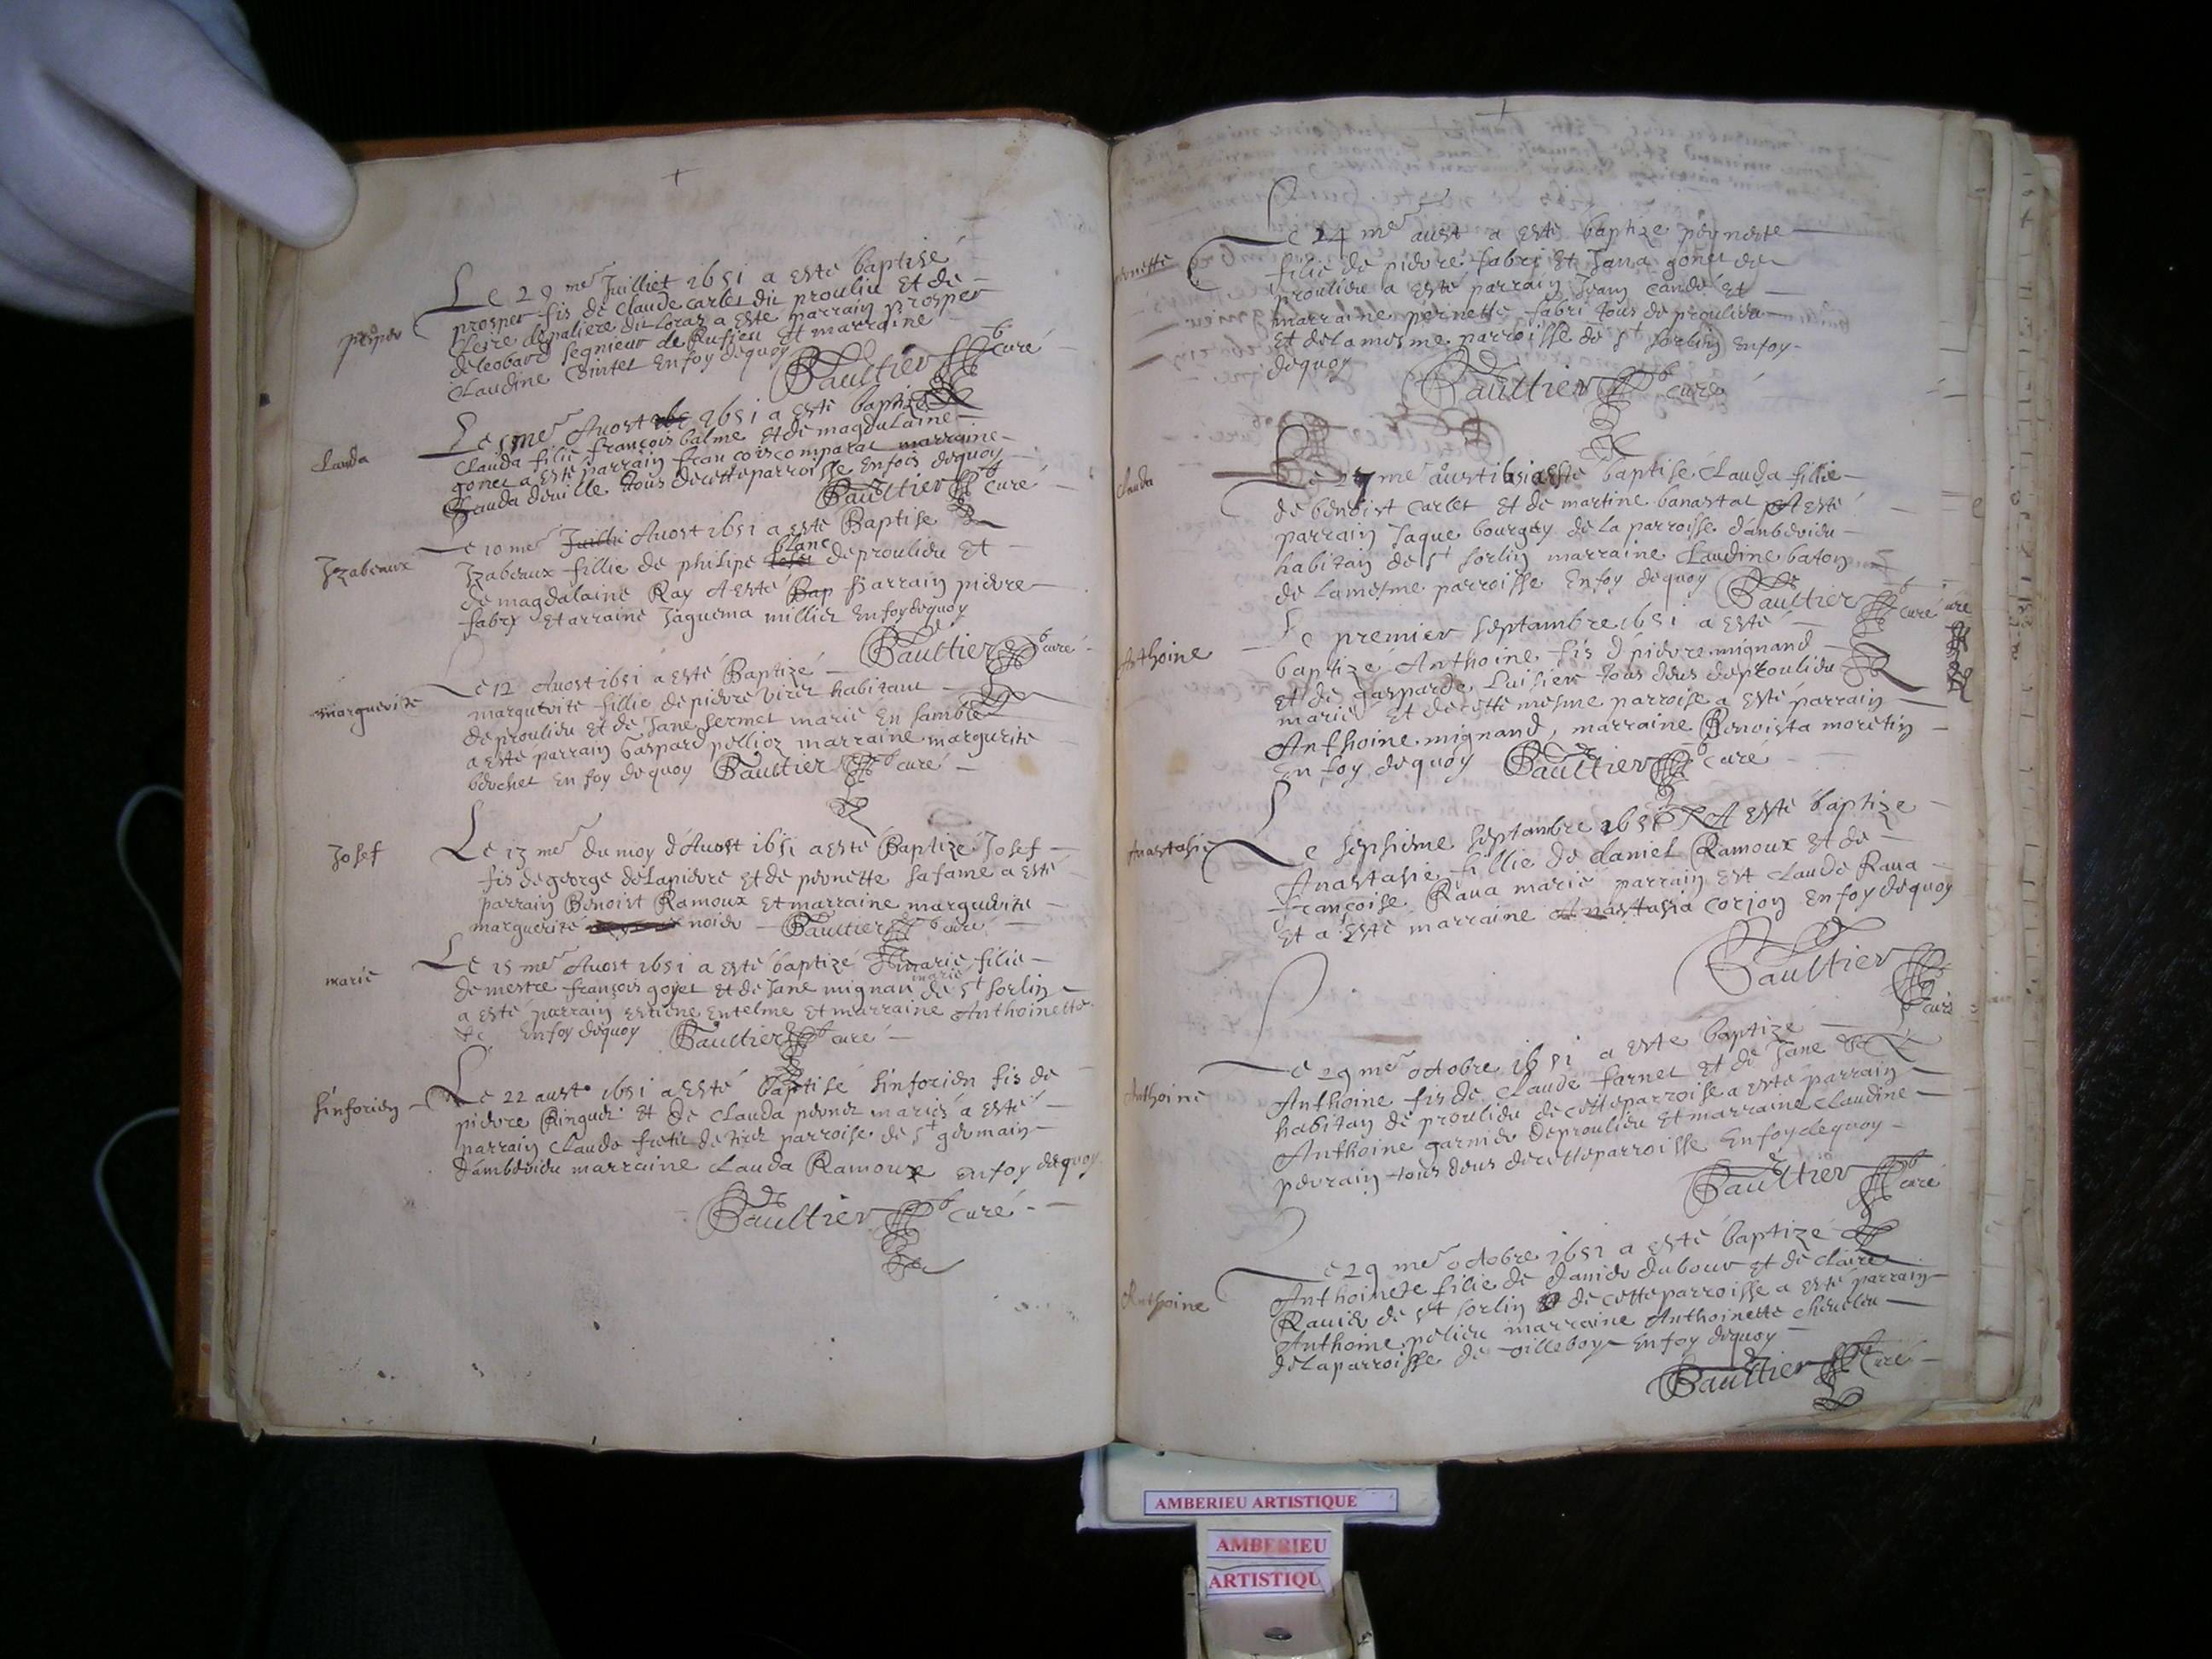 prosper
Le 29 me Juilliet 1651 a esté baptisé
prosper fis de Claude Carlet dit proulieu et de
Loras a esté parrain prosper
de Leobard segnieur de Rufieu et marraine
Claudine Cointet En foy dequoy
Gaultier curé
Clauda
Le 5me Auost 1651 a esté baptizé
Clauda fillie françois balme et de magdalaine
gonet a esté parrain francois comparat marraine
Clauda deuille tous decetteparroisse Enfois dequoy
Gaultier curé
Izabeaux
Le 10 me Juillie Auost 1651 a esté Baptise
blanc
Izabeaux fillie de philipe deproulieu et
de magdalaine Ray A esté Bap Parrain pierre
fabry et arraine Jaquema millier Enfoydequoy
Gaultier curé
marguerite
Le 12 Auost 1651 a esté Baptizé
marguerite fillie de pierre viret habitant
deproulieu et de Jane sermet marié En samble
a esté parrain Gaspard pellioz marraine margurite
bouchet En foy dequoy Gaultier curé
Josef
Le 13 me du moy d'Auost 1651 a esté Baptizé Josef
fis de george delapierre et de pernette sa fame a esté
parrain Benoist Ramoux et marraine marguerite
marguerité noide Gaultier curé
marie
Le 15 me Auost 1651 a esté baptizé marie fillie
marié
de mestre françois goyet et de Jane mignan de St sorlin
a esté parrain estiene entelme et marraine Anthoinette
&c Enfoy dequoy Gaultier curé
sinforien
Le 22 aust 1651 a esté baptisé sinforien fis de
pierre Ringuet et de Clauda pernet mariés a esté
parrain Claude de tiret parroise de St germain
dambérieu marraine Clauda Ramoux enfoy dequoy
Gaultier curé
pernette
Le 24 me aust a esté baptize pernete
fillie de pierre fabri et Jana gonet de
proulieu a esté parrain Jean et
marraine pernette fabri tous de proulieu
Et delamesme parroisse de St sorlin Enfoy
dequoy
Gaultier curé
Clauda
Le 27 me aust 1651 a esté baptisé Clauda fillie
de benoist Carlet et de martine banastat A esté
parrain Jaque bourgey de la parroisse dambérieu
habitan de St sorlin marraine Claudine baton
de lamesme parroisse Enfoy dequoy Gaultier curé
Anthoine
Le premier septambre 1651 a esté
baptizé Anthoine fis d pierre mignand
et de gasparde Luisier tous deus deproulieu
marié et decette mesme parroise a esté parrain
Anthoine mignand, marraine Benoista moretin
En foy dequoy Gaultier curé
Anastasie
Le septieme septambre 1651 A esté baptize
Anastasie fillie de daniel Ramoux et de
françoise Raua marié parrain est Claude Raua
et a esté marraine Anastasia corjon Enfoydequoy
Gaultier
curé
Anthoine
Le 29 me octobre 1651 a esté baptizé
Anthoine fis de Claude farnet et de Jane
habitan de proulieu de cette parroise a esté parrain
Anthoine garnier deproulieu et marraine Claudine
perrain tous deus decetteparroisse Enfoydequoy
Gaultier curé
Anthoine
Le 29 me octobre 1651 a esté baptizé
Anthoinete fillie de Danier dubour et de Claire
Rauier de St sorlin de cetteparroisse a esté parrain
Anthoine pelieu marraine Anthoinette cheuelu
delaparroisse de villeboys Enfoy dequoy
Gaultier curé
AMBERIEU ARTISTIQUE
AMBERIEU
ARTISTIQU